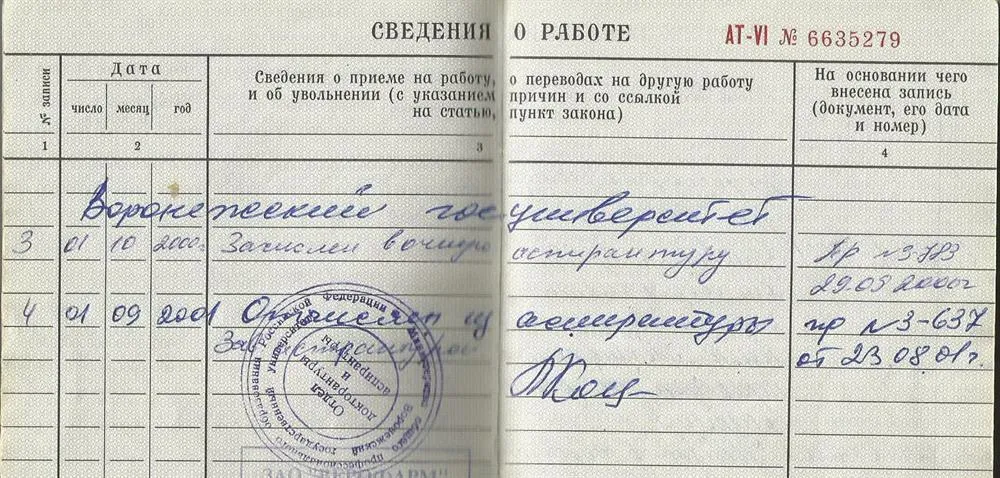 СВЕДЕНИЯ О РАБОТЕ AT-VI № 6635279
№ записи
Дата
число месяц год
Сведения о приеме на работу, о переводах на другую работу
и об увольнении (с указанием причин и со ссылкой
на статью, пункт закона)
На основании чего
внесена запись
(документ, его дата
и номер)
1 2 3 4
Воронежский гос университет
3 01 10 2000г Зачислен в очную аспирантуру пр №3-783
29.09 2000г
4 01 09 2001 Отчислен из аспирантуры пр №3-637
Зав аспирантурой от 23.08.01г.
Российской Федерации
Воронежский государственный университет
Отдел
докторантуры
и
аспирантуры
ЗАО "ВЕРОФАРМ"